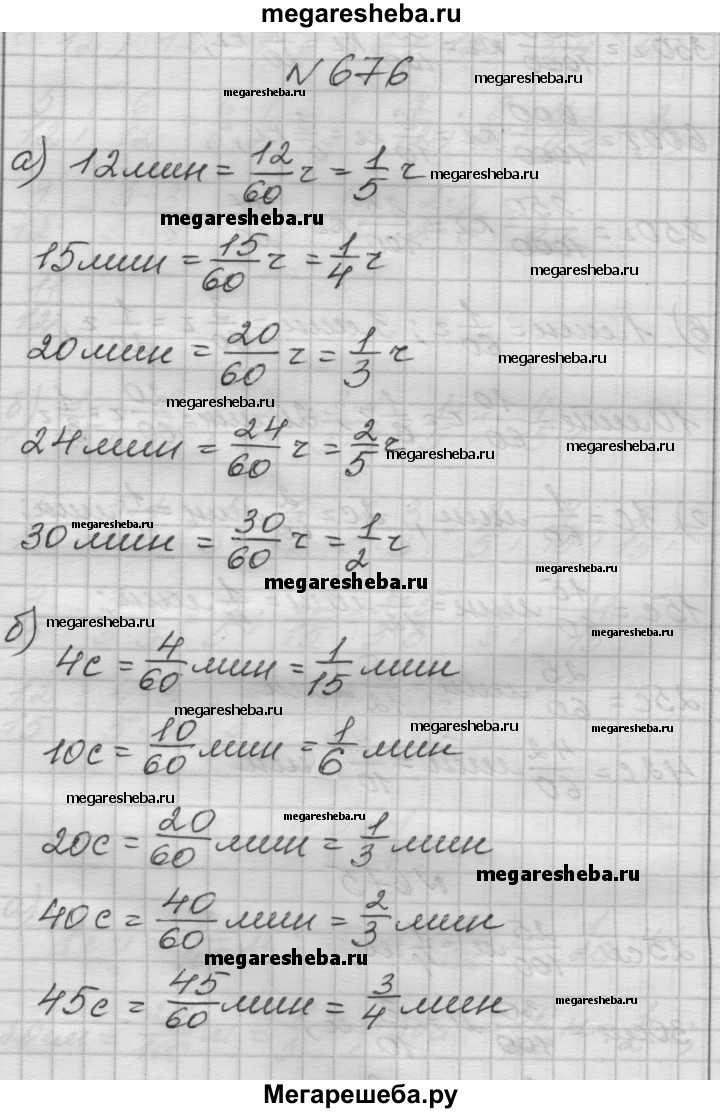 megaresheba.ru
№ 676
megaresheba.ru
megaresheba.ru
а) 12 мин = 12/60 ч = 1/5 ч
megaresheba.ru
megaresheba.ru
15 мин = 15/60 ч = 1/4 ч
megaresheba.ru
20 мин = 20/60 ч = 1/3 ч
megaresheba.ru
24 мин = 24/60 ч = 2/5 ч
megaresheba.ru
megaresheba.ru
megaresheba.ru
30 мин = 30/60 ч = 1/2 ч
megaresheba.ru
megaresheba.ru
б)
megaresheba.ru
megaresheba.ru
4с = 4/60 мин = 1/15 мин
megaresheba.ru
megaresheba.ru
megaresheba.ru
10с = 10/60 мин = 1/6 мин
megaresheba.ru
megaresheba.ru
20с = 20/60 мин = 1/3 мин
megaresheba.ru
40с = 40/60 мин = 2/3 мин
megaresheba.ru
45с = 45/60 мин = 3/4 мин
megaresheba.ru
Мегарешеба.ру